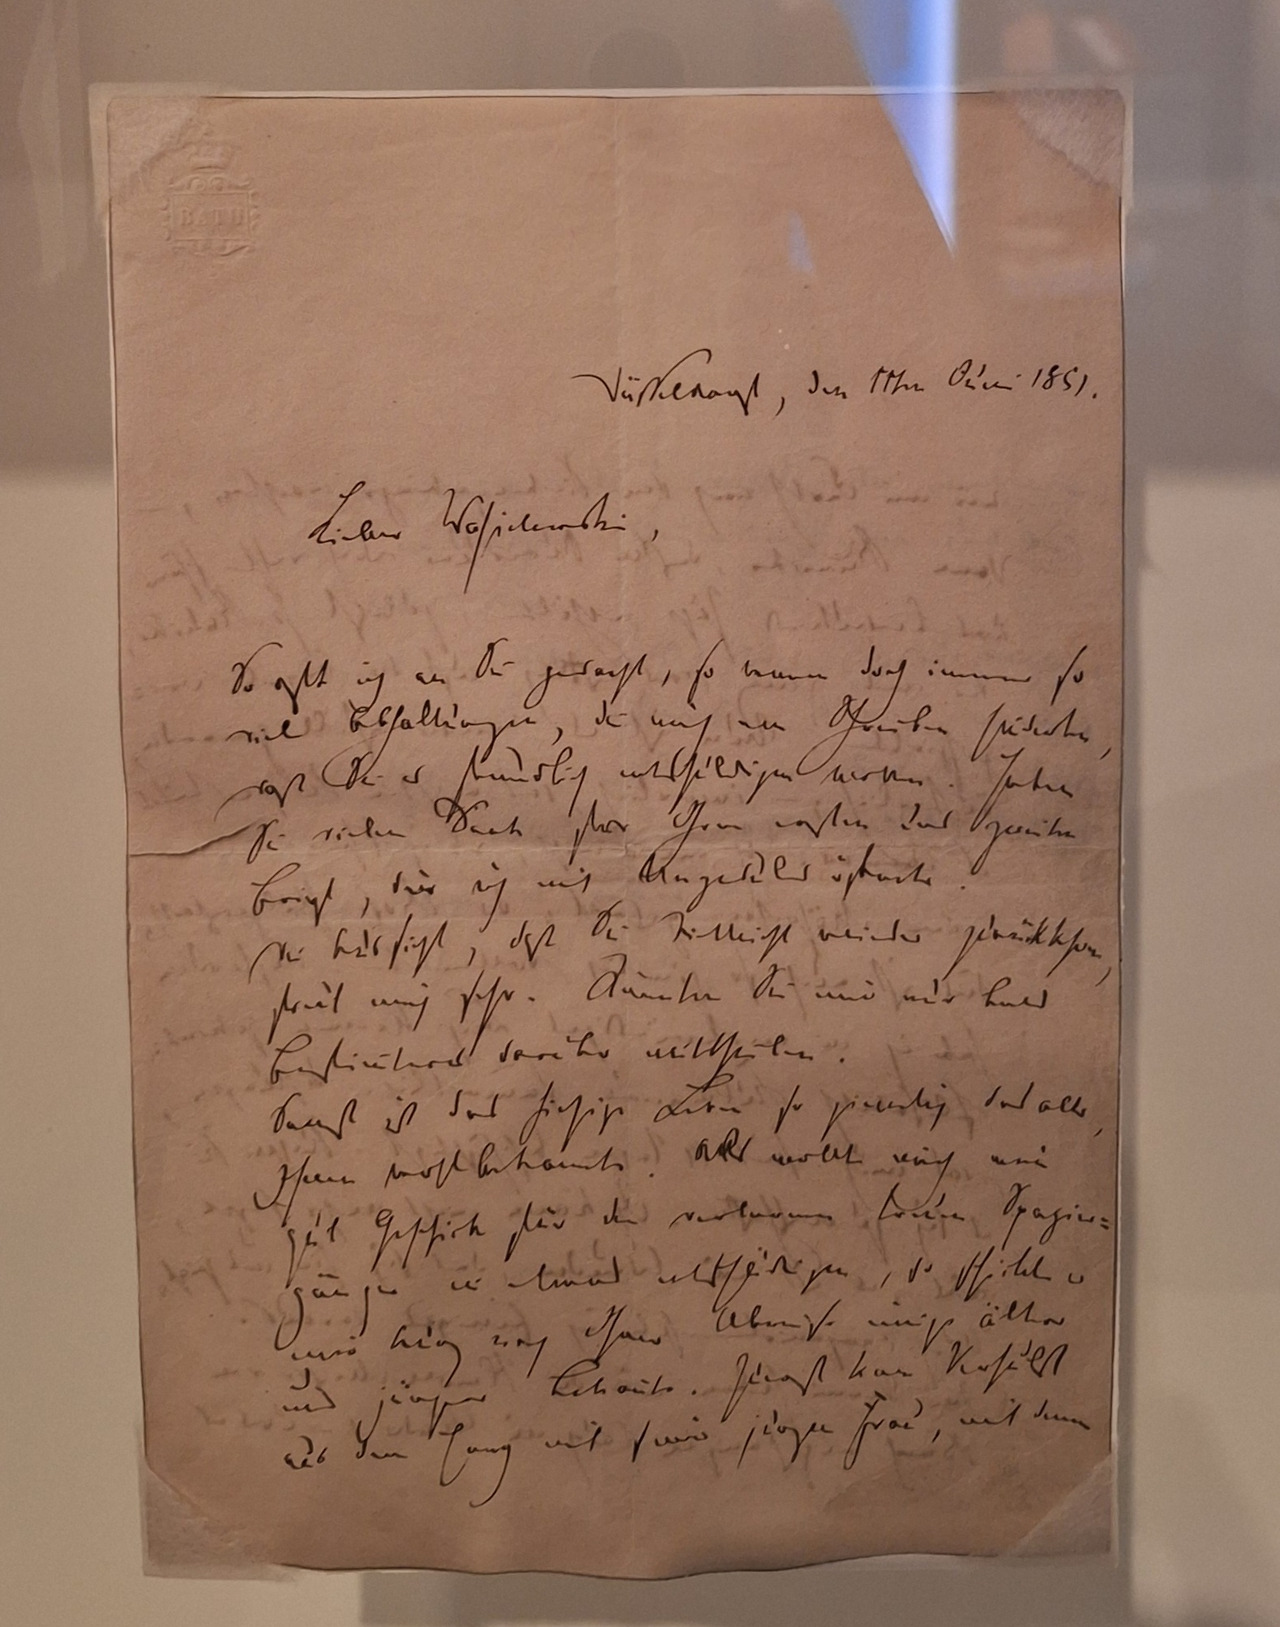 BATH
Düsseldorf, den 11ten Juni 1851.
Lieber Wasielewski,
So oft ich an Sie gedacht, so waren doch immer so
viel Abhaltungen, die mich am Schreiben hinderten,
daß Sie es freundlich entschuldigen werden. Haben
Sie vielen Dank für Ihren ersten und zweiten
Brief, den ich mit Ungeduld erwartete.
Die Aussicht, daß Sie vielleicht wieder zurückkehren,
freut mich sehr. Könnten Sie mir nur bald
Bestimmtes darüber mittheilen.
Sonst ist das hiesige Leben so ziemlich das alte,
Ihnen wohlbekannte. Als wollte mich mein
gut Geschick für den verlornen treuen Spazier=
gänger in etwas entschädigen, so schickte es
mir kurz nach Ihrer Abreise einige ältere
und jüngere Bekannte. Zuerst kam Verhulst
aus dem Haag mit seiner jungen Frau, mit dem